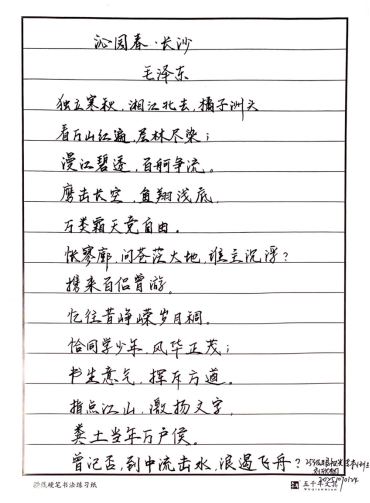 沁园春·长沙
毛泽东
独立寒秋,湘江北去,橘子洲头
看万山红遍,层林尽染;
漫江碧透,百舸争流。
鹰击长空,鱼翔浅底,
万类霜天竞自由。
怅寥廓,问苍茫大地,谁主沉浮?
携来百侣曾游。
忆往昔峥嵘岁月稠。
恰同学少年,风华正茂;
书生意气,挥斥方遒。
指点江山,激扬文字,
粪土当年万户侯。
曾记否,到中流击水,浪遏飞舟?
硬笔书法练习纸
五千年文创